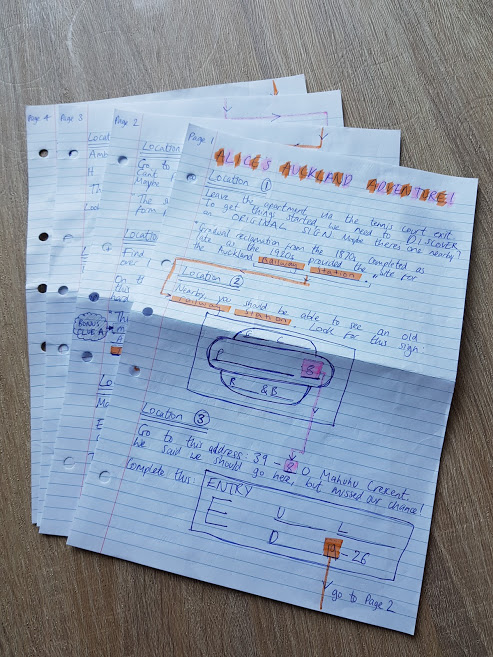 Page 4
Page 3
Page 2
Page 1
ALICE'S AUCKLAND ADVENTURE!
Location 1
Leave the apartment via the tennis court exit.
To get things started, we need to DISCOVER
an ORIGINAL SIGN. Maybe there's one nearby?
Gradual reclamation from the 1870s completed as
late as the 1920s provided the site for
the Auckland Railway Station
Location 2
Nearby, you should be able to see an old
Railway Station. Look for this sign
L
P B
B & B
Location 3
Go to this address: 39 - 2 0 Mahuhu Crescent.
We said we should go here, but missed our chance!
Complete this:
ENTRY
E U L
D 0 - 26
go to Page 2
Location
Go to
Can't
Maybe
The
form
Locatio
Find
over
On t
this
hard
BONUS
CLUE A
Th
Locat
Amb
It
Th
Look